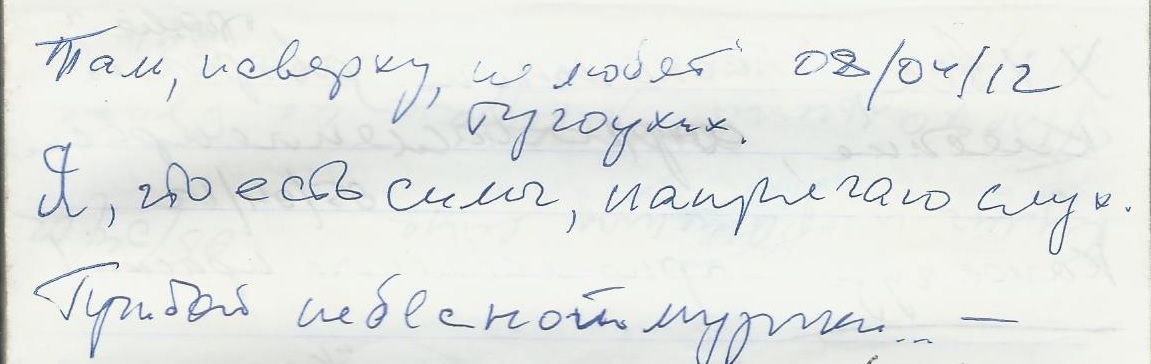 Там, наверху, не любят 08/04/12
тугоухих.
Я, что есть силы, напрягаю слух.
небесной музыки... —